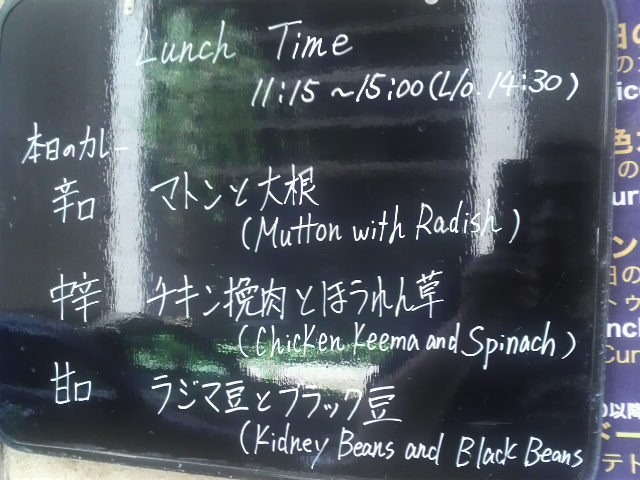 Lunch Time
11:15 ~ 15:00 (L/o. 14:30)
本日のカレー
辛口 マトンと大根
(Mutton with Radish)
中辛 チキン挽肉とほうれん草
(Chicken Keema and Spinach)
甘口 ラジマ豆とブラック豆
(Kidney Beans and Black Beans